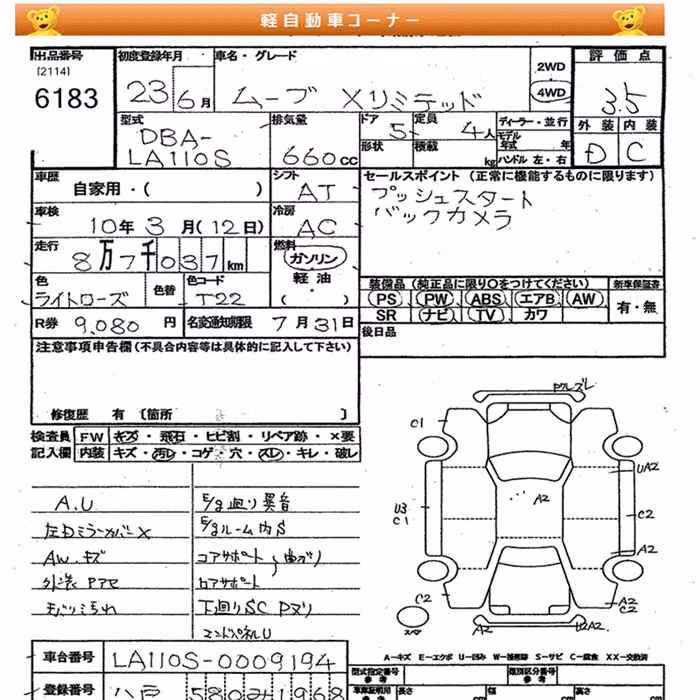 軽自動車コーナー
出品番号 初度登録年月 車名・グレード 評価点
[2114]
6183
23 6月 ムーブ Xリミテッド
2WD
4WD
3.5
型式 排気量 ドア 定員 ディーラー・並行 外装 内装
DBA-
LA110S 660cc 5 4人
モデル年式 年
形状 積載 kg ハンドル 左・右
D C
車歴 シフト セールスポイント (正常に機能するものに限ります)
自家用・( ) AT プッシュスタート
バックカメラ
車検 冷房
10年 3月(12日) AC
走行 燃料
8万7千037km ガソリン
軽油
・( )
色 色替 色コード
ライトローズ T22
装備品 (純正品に限り○をつけてください) 新車保証書
PS PW ABS エアB AW 有・無
SR ナビ TV カワ
R券 9,080円 名変通知期限 7月31日
後日品
注意事項申告欄(不具合内容等は具体的に記入して下さい)
修復歴 有 〔箇所 〕
検査員 FW キズ・飛石・ヒビ割・リペア跡・×要
記入欄 内装 キズ・汚レ・コゲ・穴・スレ・キレ・破レ
A.U
左Dミラーカバー×
AW.キズ
外装 Pアセ
E/g廻り異音
E/gルーム内S
コアサポート 曲がり
下廻りSC Pヌリ
エンドパネルU
C1
U3
C1
UA2
A2
C2
A2
C2
A2
C2
スペア
A2
U2A2
車台番号 LA110S-0009194
登録番号 八戸 580 み 1968
A-キズ E-エクボ U-凹み W-補修跡 S-サビ C-腐食 XX-交換済
型式指定番号 類別区分番号
車庫証明用参考 長さ 幅 高さ